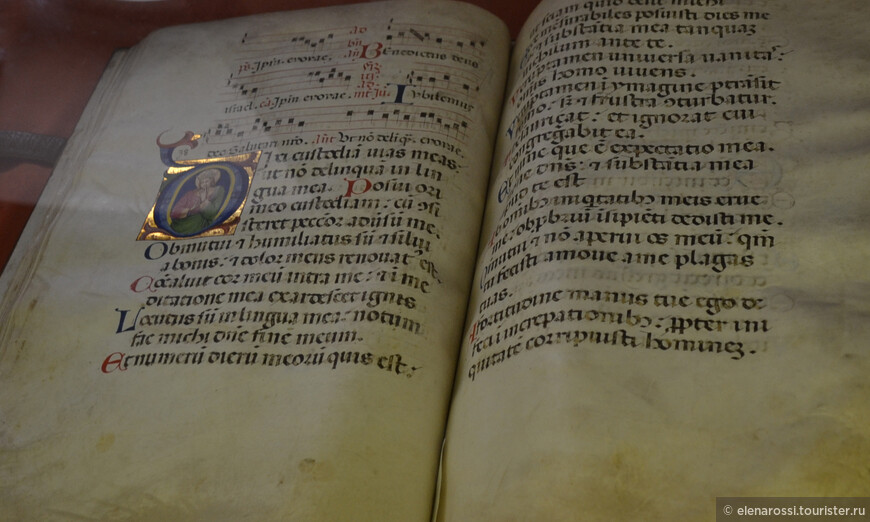 ad
Benedictus deus
ps. Ipin. evovae.
israel. ca Ipin. evovae. Iubilemus
deo salutari nro. ant Ut nō deliq. evovae.
Dixi custodiā vias meas:
ut nō delinquā in lin
gua mea. Posui ori
meo custodiam: cū ↄsi
steret peccōr adūsū me.
Obmutui ⁊ humiliatus sū ⁊ silui
a bonis: ⁊ dolor meus renovat' est.
Cōcaluit cor meū intra me: ⁊ ī me
ditatione mea exardescet ignis
Locutus sū in lingua mea: notum
fac michi dn̄e finē meum.
Et numerū dierū meorū quis est:
quid desit michi
mensurabiles posuisti dies me
os: ⁊ substātia mea tanquaʒ
nichilum ante te.
tamen universa vanitas
omnis homo vivens.
tamen ī ymagine ptrāsit
homo: sꝫ ⁊ frustra ↄturbatur.
aurizat: et ignorat cui
congregabit ea.
nunc que ē expectatio mea.
dn̄s: ⁊ substātia mea
apud te est
omībꝰ iniqtatibꝰ meis erue
me: obp̄briū īsipiēti dedisti me.
Obmutui ⁊ nō aperui os meū: qm̄
tu fecisti amove a me plagas
tuas.
A fortitudine manus tue ego de
feci ī increpationibꝰ: ꝓpter ini
quitatē corripuisti hominē.
© elenarossi.tourister.ru